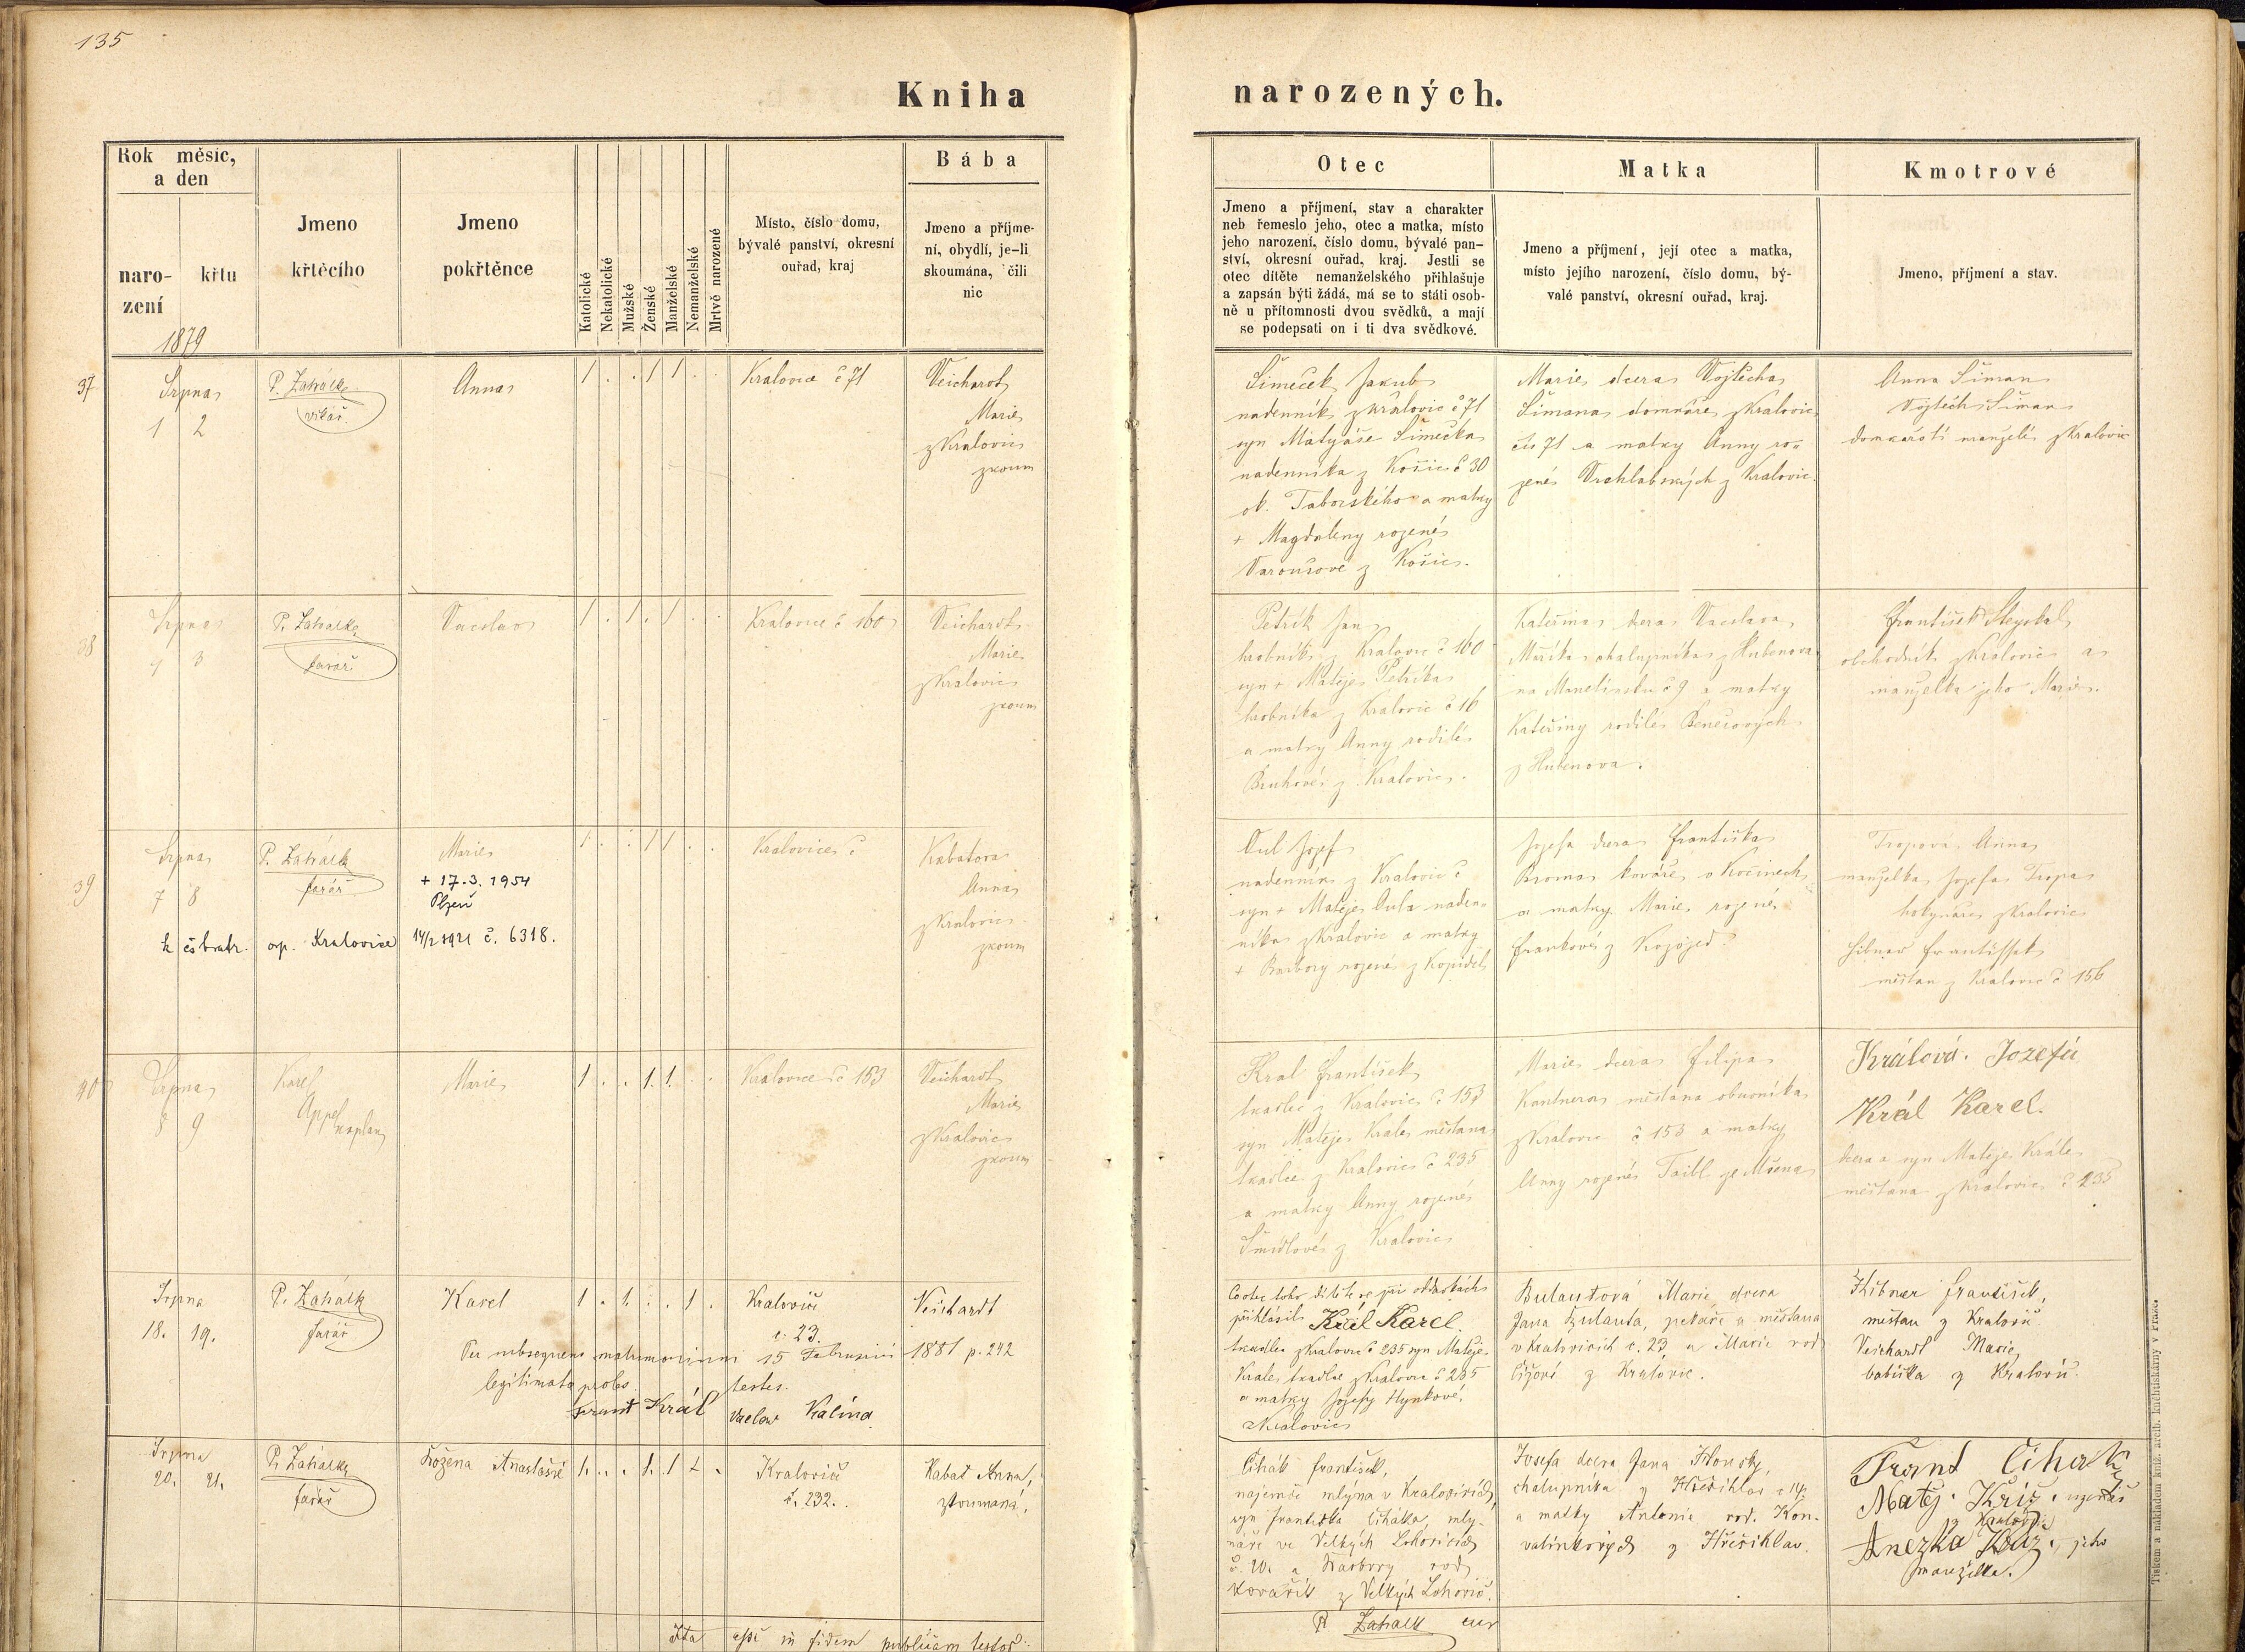 135
Kniha
narozených.
Rok měsíc,
a den
naro-
zení
křtu
1879
Jmeno
křtěcího
Jmeno
pokřtěnce
Katolické
Nekatolické
Mužské
Ženské
Manželské
Nemanželské
Mrtvě narozené
Místo, číslo domu,
bývalé panství, okresní
ouřad, kraj
Bába
Jmeno a příjme-
ní, obydlí, je-li
skoumána, čili
nic
Otec
Jmeno a příjmení, stav a charakter
neb řemeslo jeho, otec a matka, místo
jeho narození, číslo domu, bývalé pan-
ství, okresní ouřad, kraj. Jestli se
otec dítěte nemanželského přihlašuje
a zapsán býti žádá, má se to státi osob-
ně u přítomnosti dvou svědků, a mají
se podepsati on i ti dva svědkové.
Matka
Jmeno a příjmení, její otec a matka,
místo jejího narození, číslo domu, bý-
valé panství, okresní ouřad, kraj.
Kmotrové
Jmeno, příjmení a stav.
37
Srpna
1 2
P. Zahálka
vikář.
Anna
1 . . 1 1 . .
Kralovice č 71
Veichardt
Marie
z Kralovic
zkoum
Šimeček Jakub
nadenník z Kralovic č 71
syn Matyáše Šimečka
nadenníka z Košic č 30
ok. Taborského a matky
+ Magdaleny rozené
z Košic.
Marie dcera Vojtěcha
Šimana domkáře z Kralovic
čis 71 a matky Anny ro-
zené Vrchlabských z Kralovic.
Anna Šiman
Vojtěch Šiman
domkářští manželé z Kralovic
38
Srpna
1 3
P. Zahálka
farář
Vaclav
1 . 1 . 1 . .
Kralovice č 160
Veichardt
Marie
z Kralovic
zkoum
Petřík Jan
hrobník z Kralovic č 160
syn + Matěje Petříka
hrobníka z Kralovic č 16
a matky Anny rodilé
z Kralovic.
Kateřina dcera Vaclava
Maříka chalupníka z Hubenova
č 9 a matky
Kateřiny rodilé Benešových
z Hubenova.
František Stejskal
obchodník z Kralovic a
manželka jeho Marie.
39
Srpna
7 8
P. Zahálka
farář
Marie
+ 17.3. 1954
Plzeň
k čsbratr. op. Kralovice 14/2 1921 č. 6318.
1 . . 1 1 . .
Kralovice č
Kabatova
Anna
z Kralovic
zkoum
Dul Josef
nadenník z Kralovic č
syn + Matěje Dula naden-
níka z Kralovic a matky
+ Barbory rozené z Kopidel
Josefa dcera Františka
Broma kováře v Kočinech
a matky Marie rozené
Frankové z Kozojed
Tropova Anna
manželka Josefa Tropa
hokynáře z Kralovic
Hibner Frantisek
měšťan z Kralovic č 156
40
Srpna
8 9
Karel
Appel
kaplan
Marie
1 . . 1. 1. . .
Kralovice č 153
Veichardt
Marie
z Kralovic
zkoum
Kral František
tkadlec z Kralovic č 153
syn Matěje Krale měšťana
tkadlce z Kralovic č 235
a matky Anny rozené
Šmídlové z Kralovic
Marie dcera Filipa
Kantnera měšťana obuvníka
z Kralovic č 153 a matky
Anny rozené Taitl ze Mšena
Králová. Jozefa
Král Karel.
dcera a syn Matěje Krále
měšťana z Kralovic č 235
Srpna
18. 19.
P. Zahálk
farář
Karel
1 . 1. . . 1 .
Kralovic
č. 23.
Veichardt
Per subsequens matrimonium 15 Februarii 1881 p. 242
legitimata proles. testes.
Frant Král Vaclav Kalina
Co otec toho dítěte se při oddavkách
přihlásil Král Karel.
tkadlec z Kralovic č 235 syn Matěje
Krale tkadlce z Kralovic č 235
a matky Josefy Hynkové,
z Kralovic
Bulautová Marie, dcera
Jana Bulauta, pekaře a měšťana
v Kralovicích č. 23 a Marie rod.
Čížové z Kralovic.
Hibner František,
měšťan z Kralovic.
Veichardt Marie,
babička z Kralovic.
Srpna
20. 21.
P. Zahálka
farář
Božena Anastasie
1. . . 1. 1 .
Kralovic
č. 232.
Kabat Anna,
zkoumaná.
Čihák František,
najemce mlýna v Kralovicích,
syn Františka Čiháka, mly-
náře ve Velkých Lohovicích
č. 20. a Barbory rod.
Kovařík z Velkých Lohovic.
Josefa dcera Jana Housky,
chalupníka z Hřešihlav č 14.
a matky Antonie rod. Kon-
valinkových z Hřešihlav.
Frant Cihak
Matěj Kříž.
z Kralovic
Anežka Kříž., jeho
manželka.
P. Zahálk
Ita esse in fidem publicam testor
Tiskem a nákladem kníž. arcib. knihtiskárny v Praze.